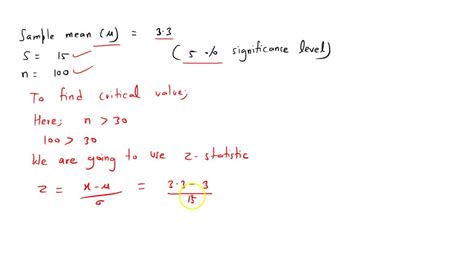 Sample mean (μ) = 3.3
S = 15 ✓
n = 100 ✓
(5 % significance level)
To find critical value;
Here; n > 30
100 > 30
We are going to use z-statistic
z = x-μ/σ = 3.3-3/15